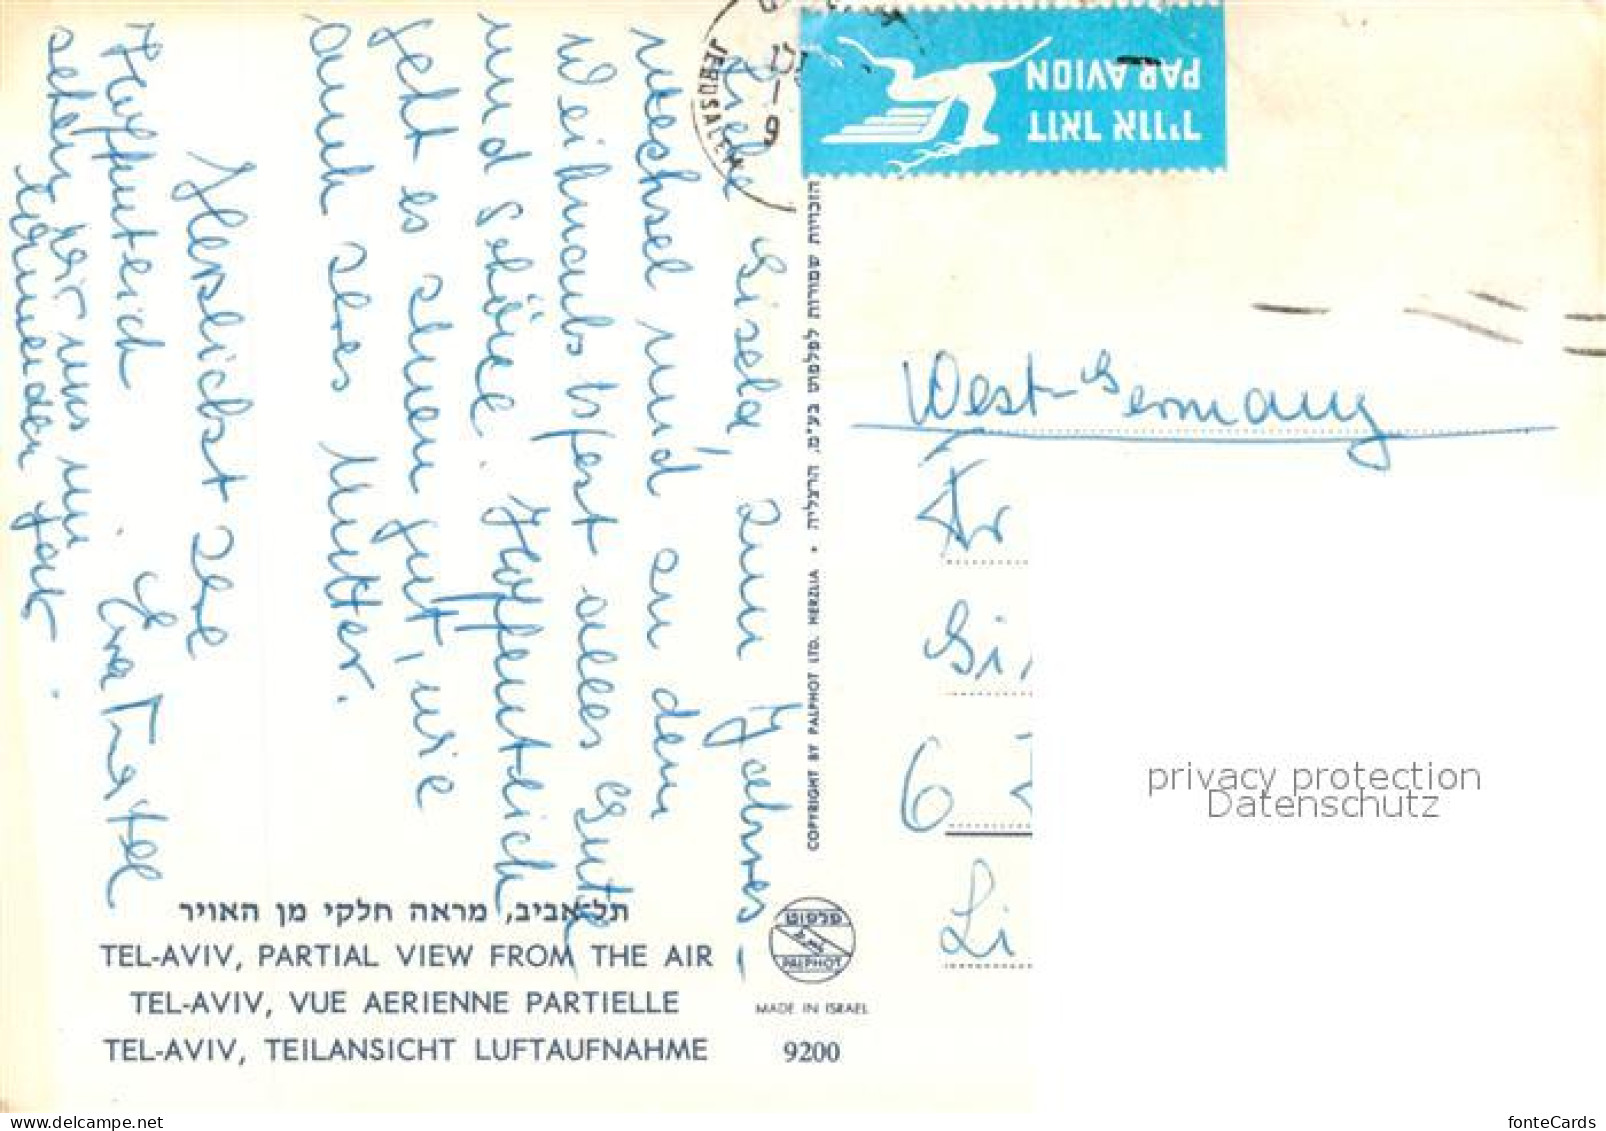 Liebe Gisela, zum Jahres-
wechsel und an dem
Weihnachtsfest alles Gute
und Schöne. Hoffentlich
geht es Ihnen gut, wie
auch stes Mutter.
Herzlichst
Hoffentlich
sehen wir uns im
kommenden Jahr.
JERUSALEM
דואר אויר
PAR AVION
West-Germany
Fr
Gi
6
Li
הזכויות שמורות לפלפוט בע"מ, הרצליה • COPYRIGHT BY PALPHOT LTD. HERZLIA
תל-אביב, מראה חלקי מן האויר
TEL-AVIV, PARTIAL VIEW FROM THE AIR
TEL-AVIV, VUE AERIENNE PARTIELLE
TEL-AVIV, TEILANSICHT LUFTAUFNAHME
פלפוט
PALPHOT
MADE IN ISRAEL
9200
privacy protection
Datenschutz
fonteCards